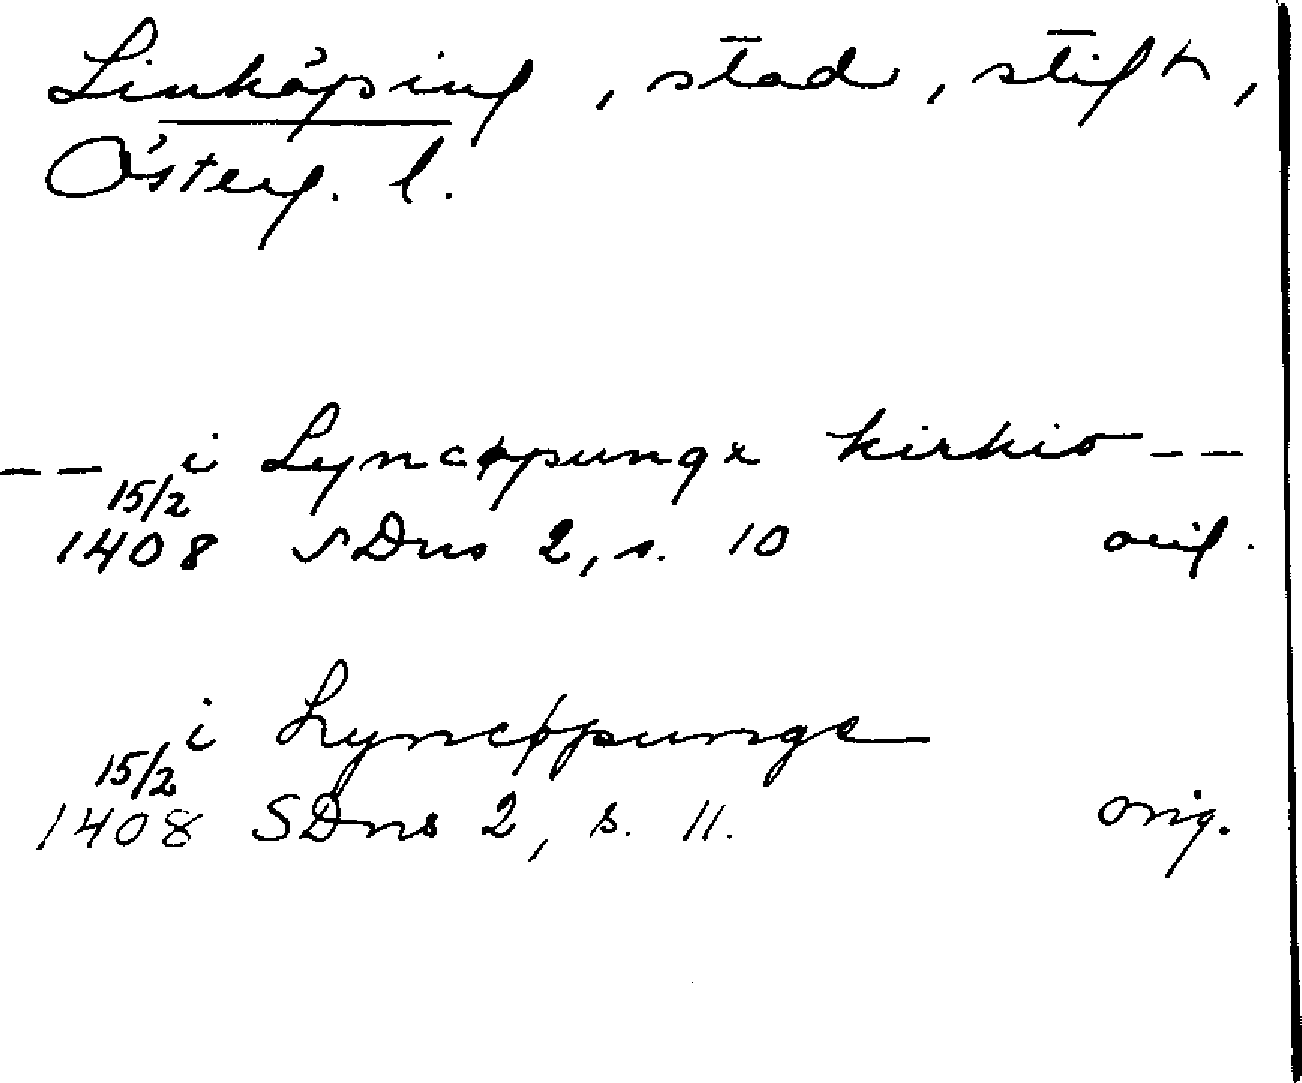 Linköping, stad, stift,
Österg. l.
-- i Lyncøpungx kirkio --
15/2
1408 SDns 2, s. 10 orig.
i Lyncøpunge
15/2
1408 SDns 2, s. 11. orig.